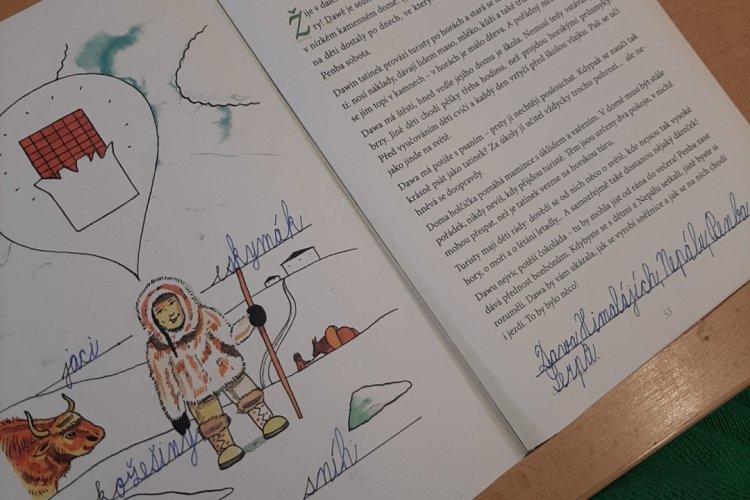 eskymák
jaci
kožešiny
sníh
Žije v
ry! Dawě je sedm
v nízkém kamenném domě.
na děti dostaly po dnech, ve který
Penba sobota.
Dawin tatínek provází turisty po horách a stará se
ti: nosí náklady, dávají lidem maso, mléko, kůži a také tru
se jím topí v kamnech – v horách je málo dřeva. A pořádný mra
Dawa má štěstí, hned vedle jejího domu je škola. Nemusí tedy vstávat
brzy. Jiné děti chodí pěšky třeba hodinu, než projdou horskými průsmyky.
Před vyučováním děti cvičí a každý den vztyčí před školou vlajku. Pak se učí
jako jinde na světě.
Dawa má potíže s psaním – prsty ji nechtějí poslouchat. Kdypak se naučí tak
krásně psát jako tatínek? Za úkoly ji učitel vždycky trochu pohrozí… ale ne-
hněvá se doopravdy.
Doma holčička pomáhá mamince s úklidem a vařením. V domě musí být stále
pořádek, nikdy nevíš, kdy přijdou turisté. Těm jsou určeny dva pokoje, v nichž
mohou přespat, než je tatínek vezme na horskou túru.
Turisty mají děti rády: dovědí se od nich něco o světě, kde nejsou tak vysoké
hory, o moři a o létání letadly… A samozřejmě také dostanou nějaký dáreček!
Dawu nejvíc potěší čokoláda – tu by mohla jíst od rána do večera! Penba zase
dává přednost bonbónům. Kdybyste se s dětmi z Nepálu setkali, jistě byste si
rozuměli. Dawa by vám ukázala, jak se vyrobí sněžnice a jak se na nich chodí
i jezdí. To by bylo něco!
53
Dawa, Himalájích, Nepálu, Penba
Šerpa.